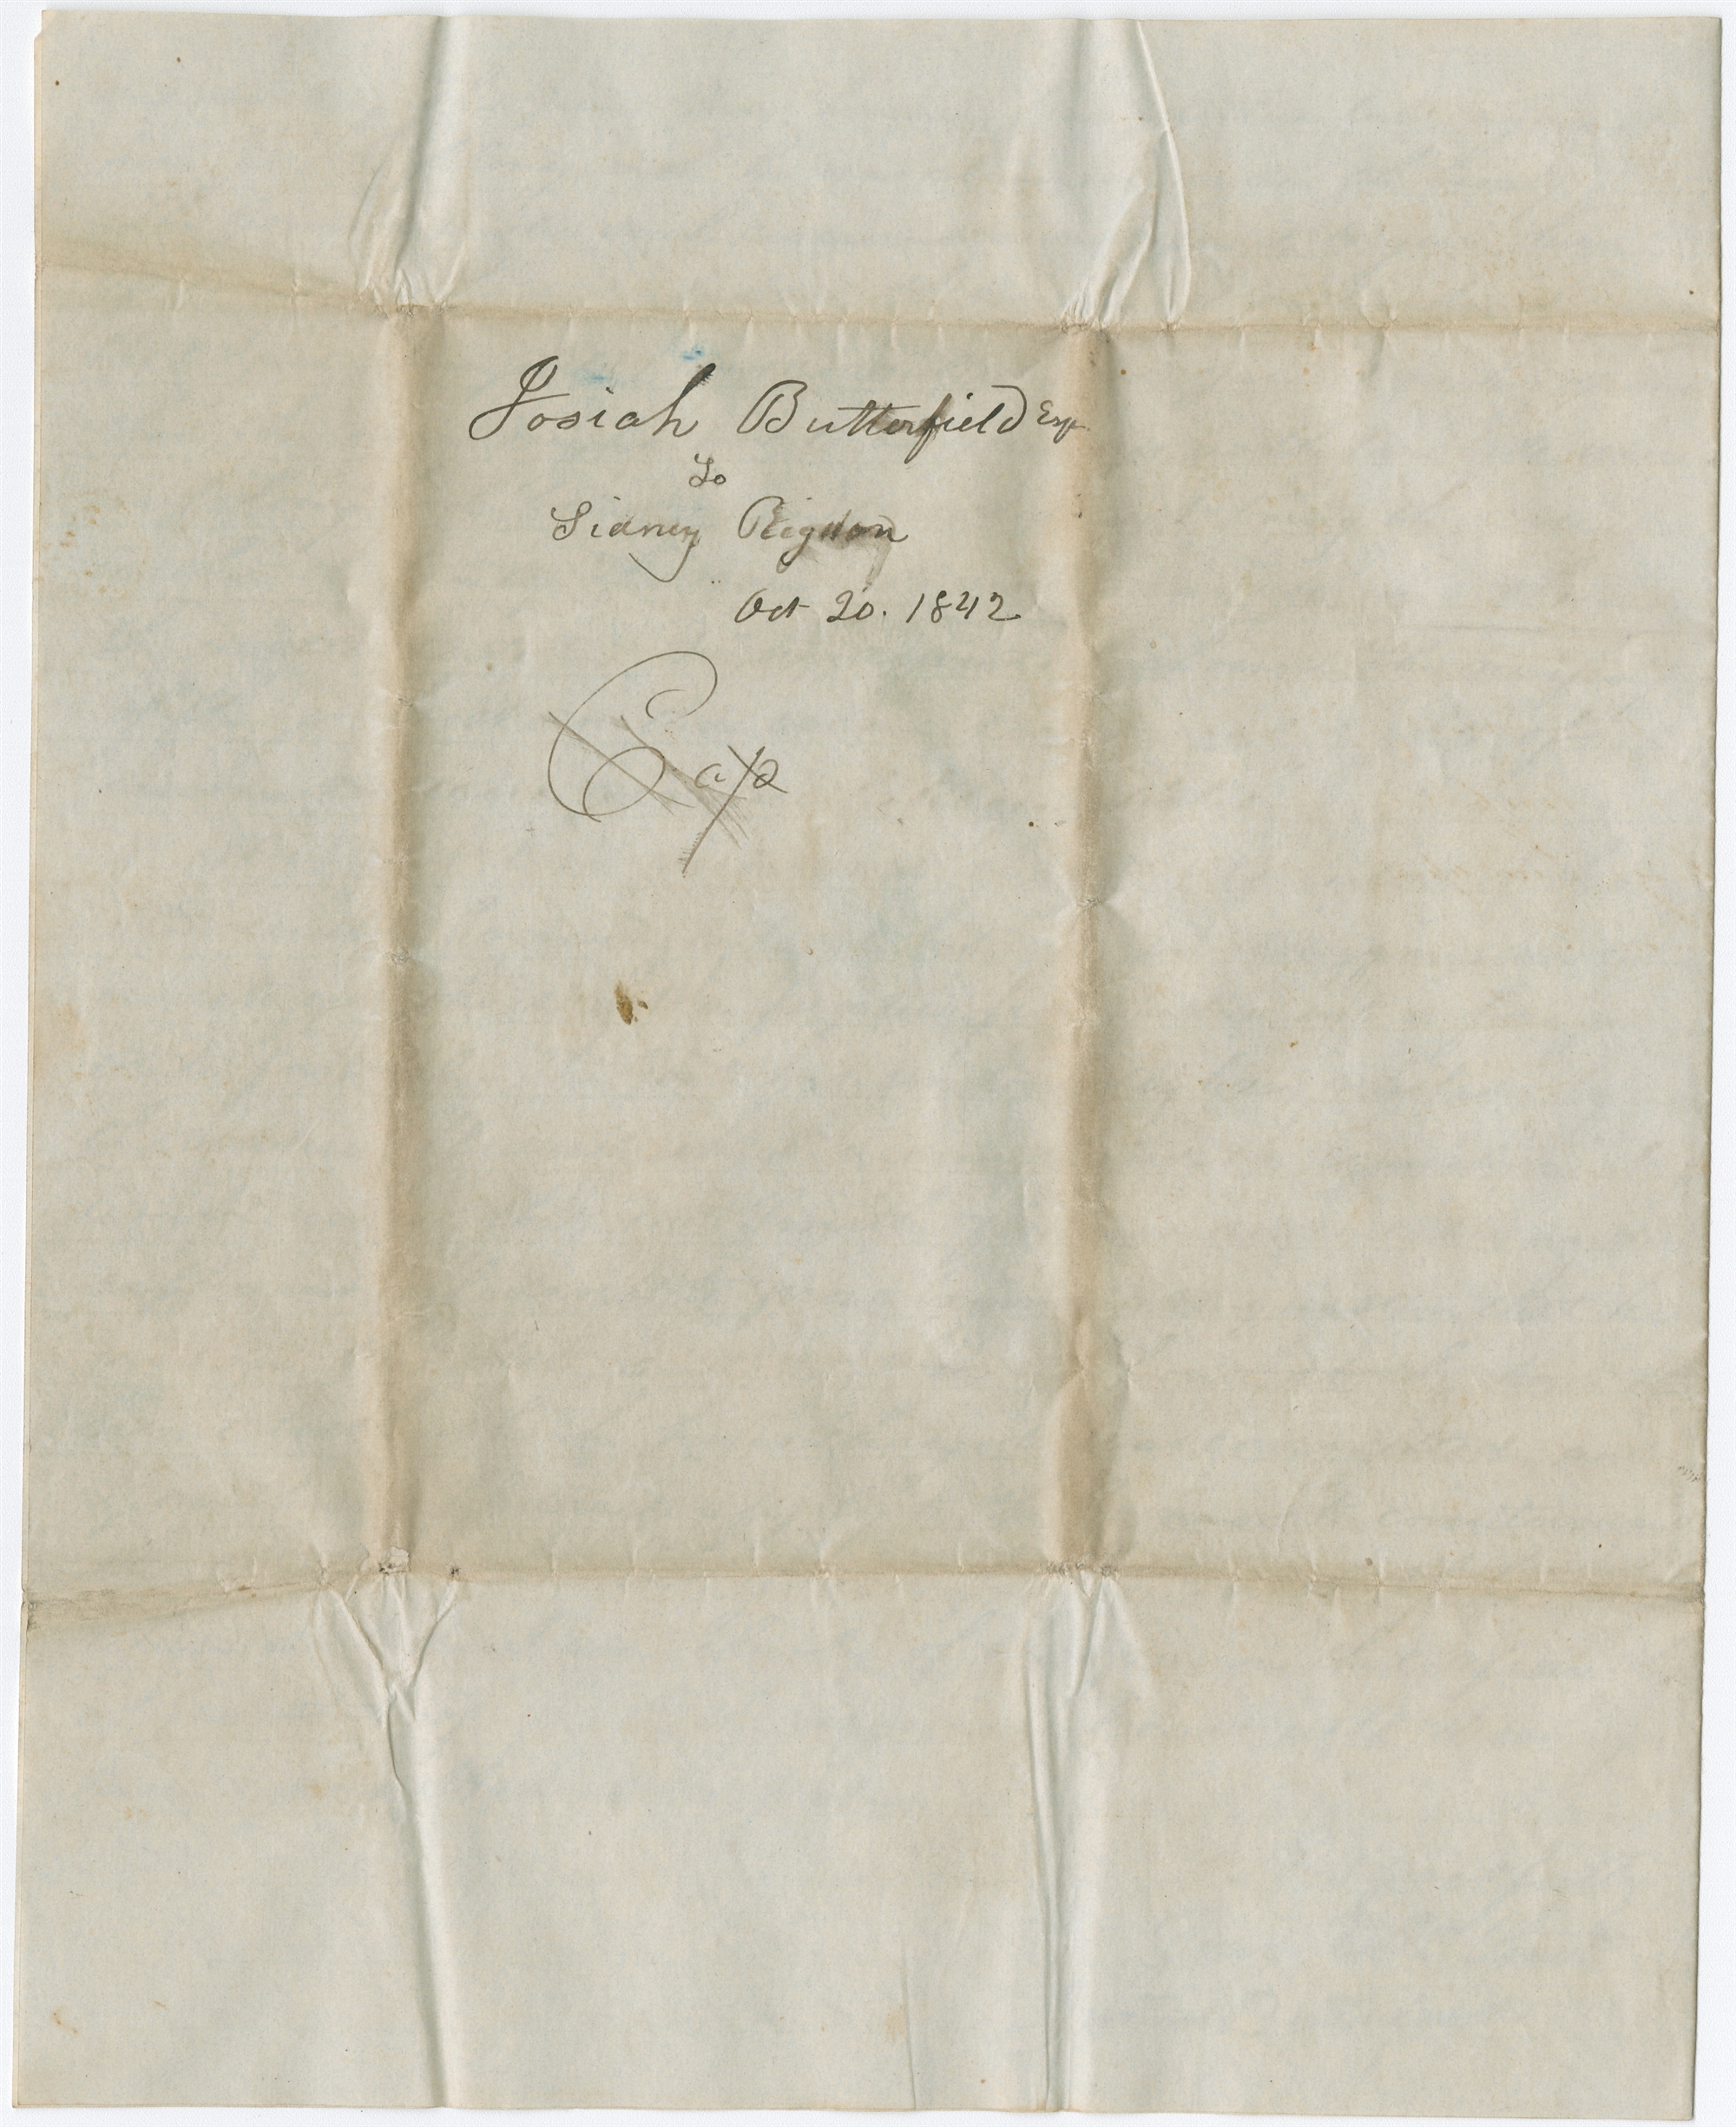 Josiah Butterfield Esqr
To
Sidney Rigdon
Oct 20. 1842